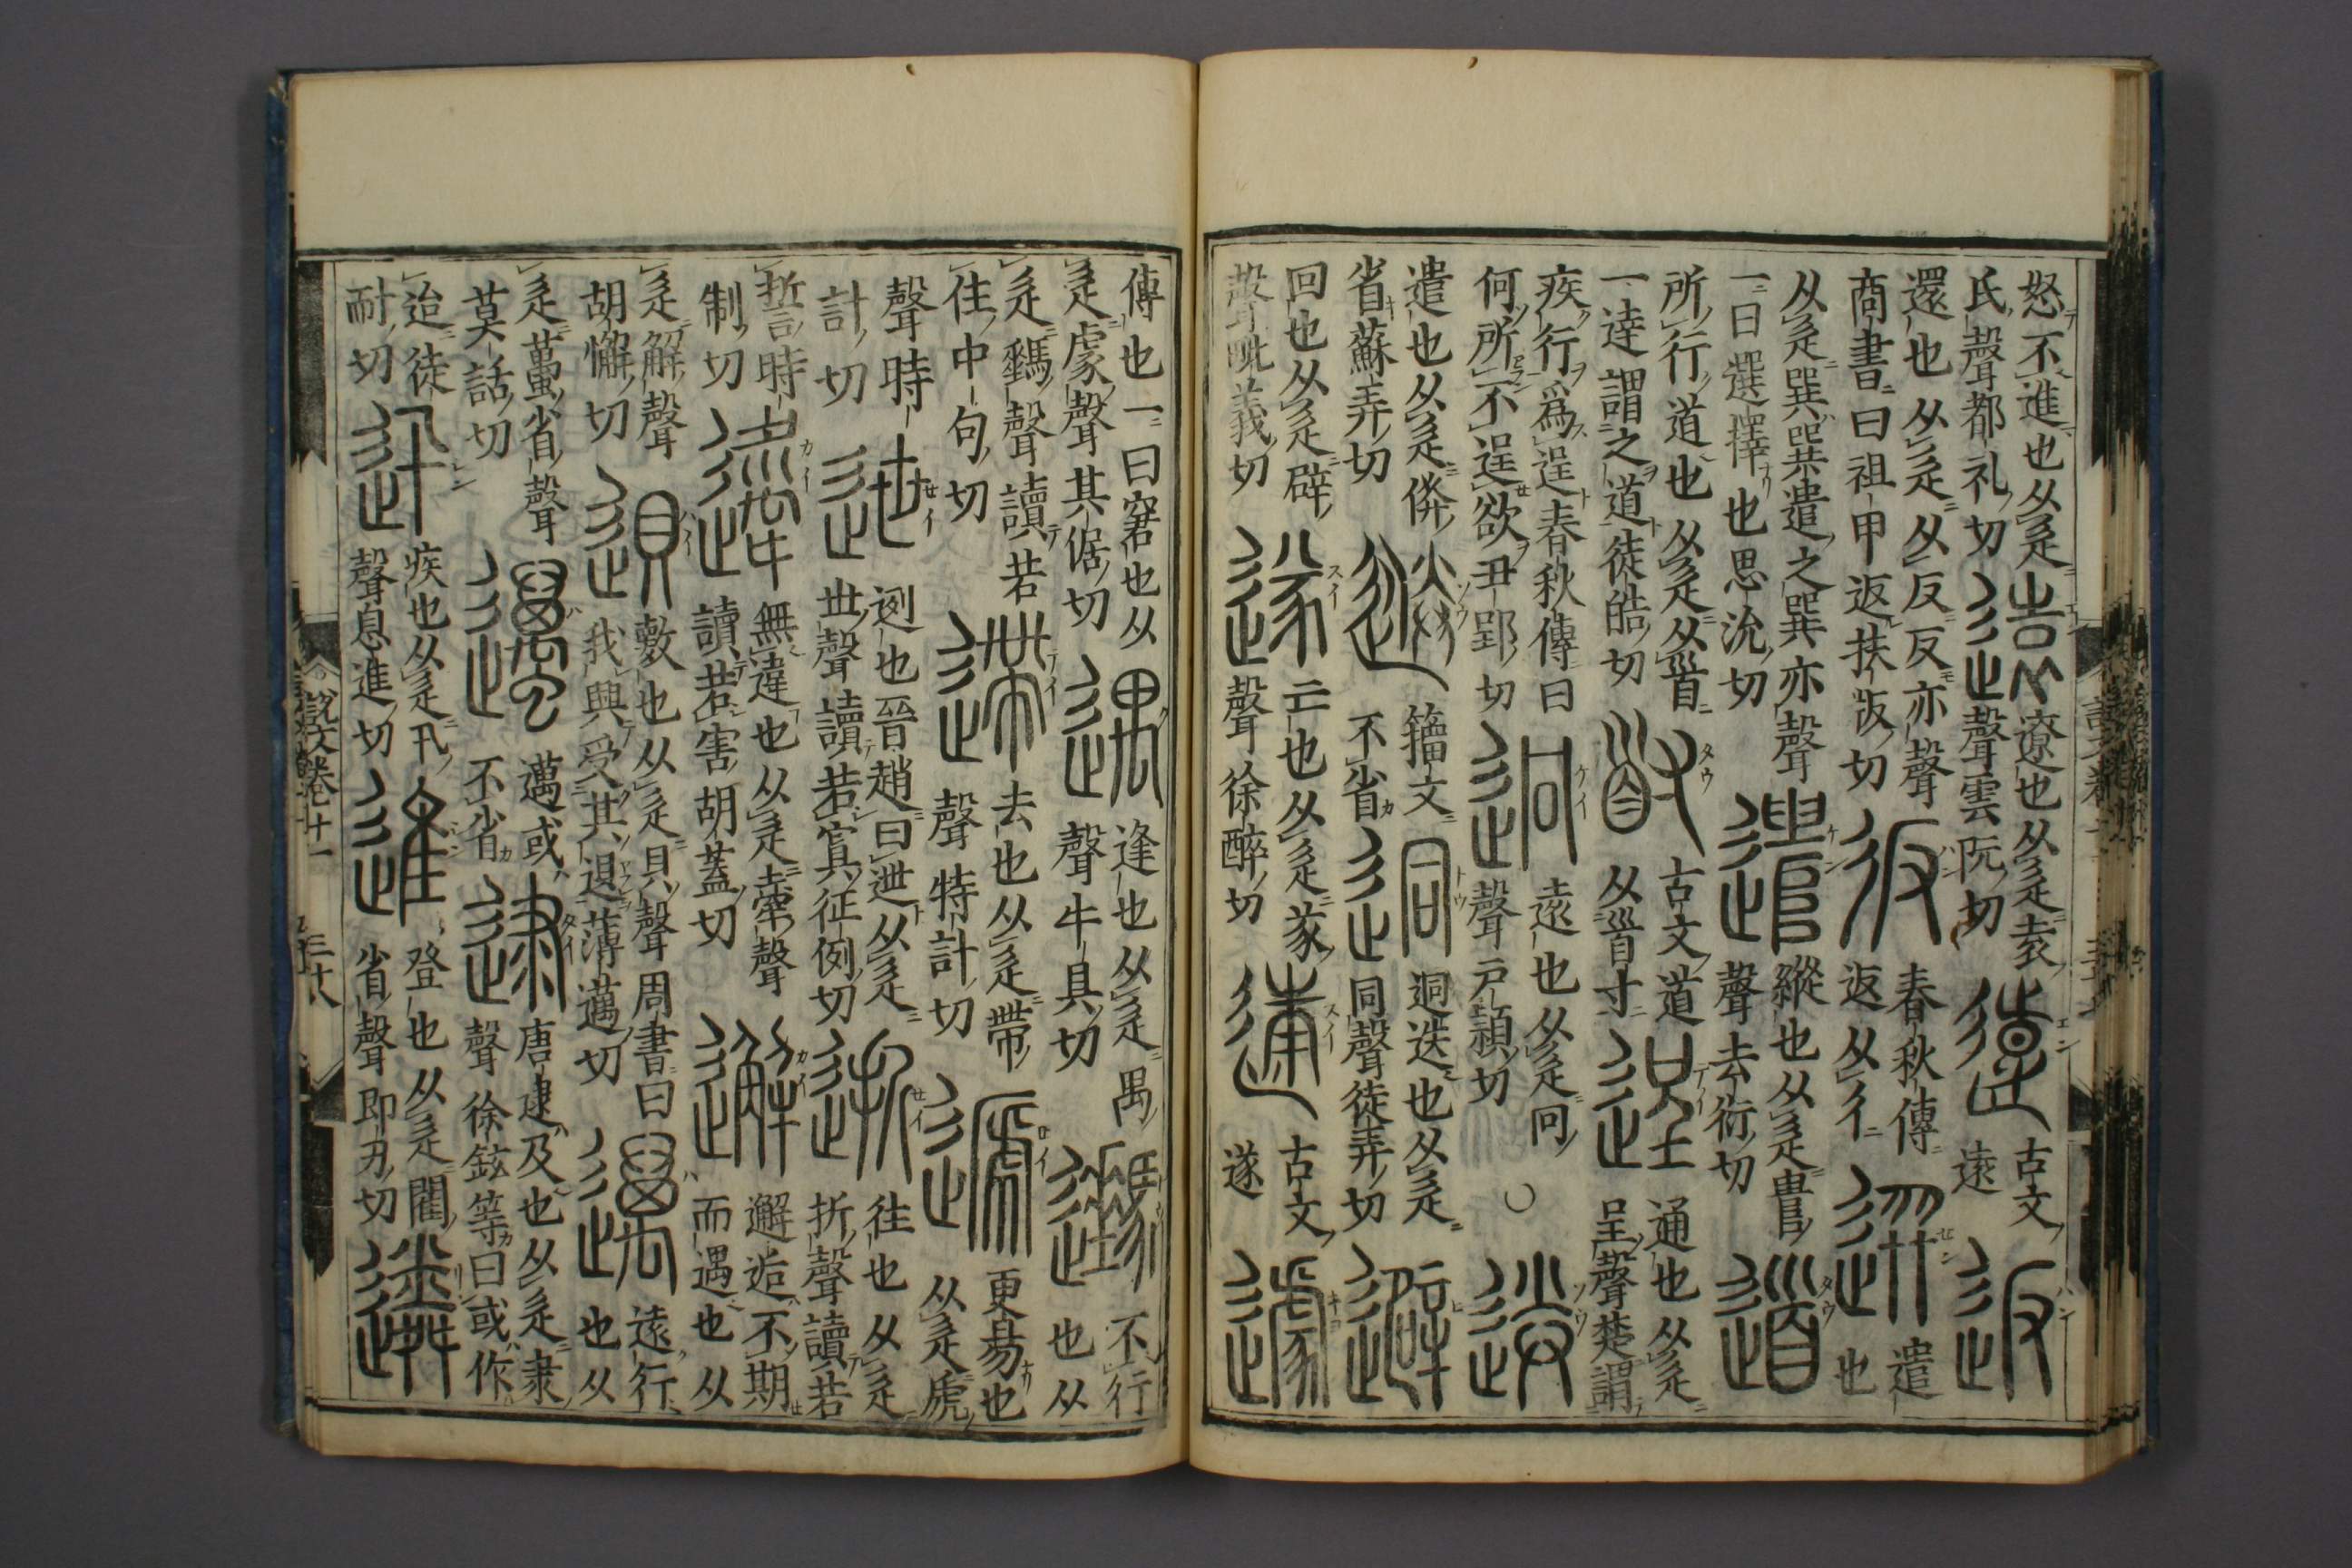 怒不進也从辵氐聲都礼切遠遼也从辵袁聲雲阮切𢕱古文遠返
還也从辵从反反亦聲商書曰祖甲返扶版切𢓉春秋傳返从彳選遣也
从辵巽巽遣之巽亦聲一曰選擇也思沇切遣縱也从辵𠳋聲去衍切道
所行道也从辵从𩠐一達謂之道徒皓切𡬹古文道从𩠐寸逞通也从辵呈聲楚謂
疾行爲逞春秋傳曰何所不逞欲丑郢切迥遠也从辵冋聲戸穎切送
遣也从辵㑞省蘇弄切籀文不省迵迵迭也从辵同聲徒弄切避
回也从辵辟聲毗義切遂亡也从辵㒸聲徐醉切古文遂遽
傳也一曰窘也从辵豦聲其倨切遇逢也从辵禺聲牛具切不行也从
辵聲讀若住中句切遰去也从辵帶聲特計切遞更易也从辵虒
聲時計切迣迾也晉趙曰迣从辵世聲讀若寘征例切逝往也从辵折聲讀若
誓時制切無違也从辵舝聲讀若害胡蓋切邂邂逅不期而遇也从
辵解聲胡懈切敷也从辵貝聲周書曰我興受其退薄邁切邁遠行也从
辵蠆省聲莫話切邁或不省逮唐逮及也从辵隶聲徐鉉等曰或作
迨徒耐切迅疾也从辵卂聲息進切進登也从辵閵省聲即刃切遴
說文卷十一